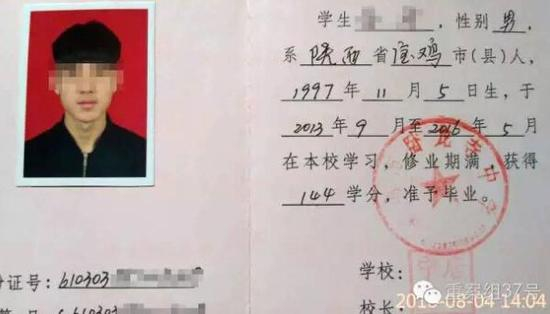 学生 , 性别 男 ,
系 陕西 省 宝鸡 市(县)人,
1997 年 11 月 5 日生, 于
2013 年 9 月至 2016 年 5 月
在本校学习, 修业期满, 获得
144 学分, 准予毕业。
份证号: 610303
学校:
校长:
号: 610303
重案组37号
08-04 14:04